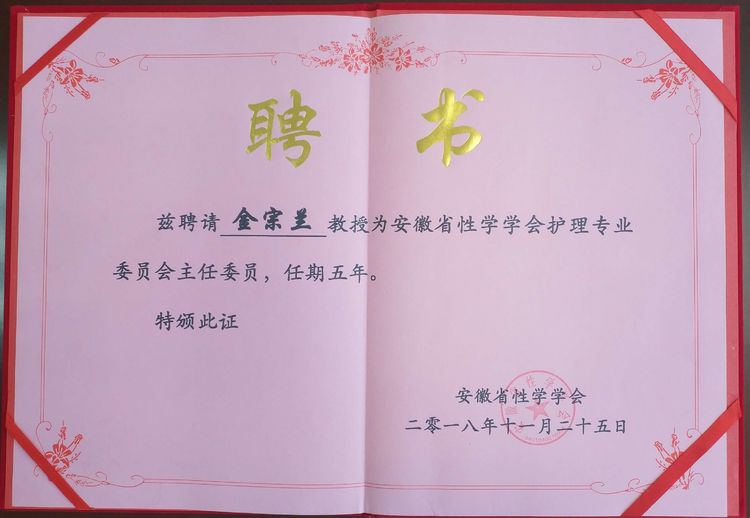 聘书
兹聘请 金宗兰 教授为安徽省性学学会护理专业
委员会主任委员，任期五年。
特颁此证
安徽省性学学会
二零一八年十一月二十五日